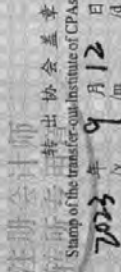 注册会计师
转出协会盖章
Stamp of the transfer-out Institute of CPAs
2023年9月12日
/y /m /d